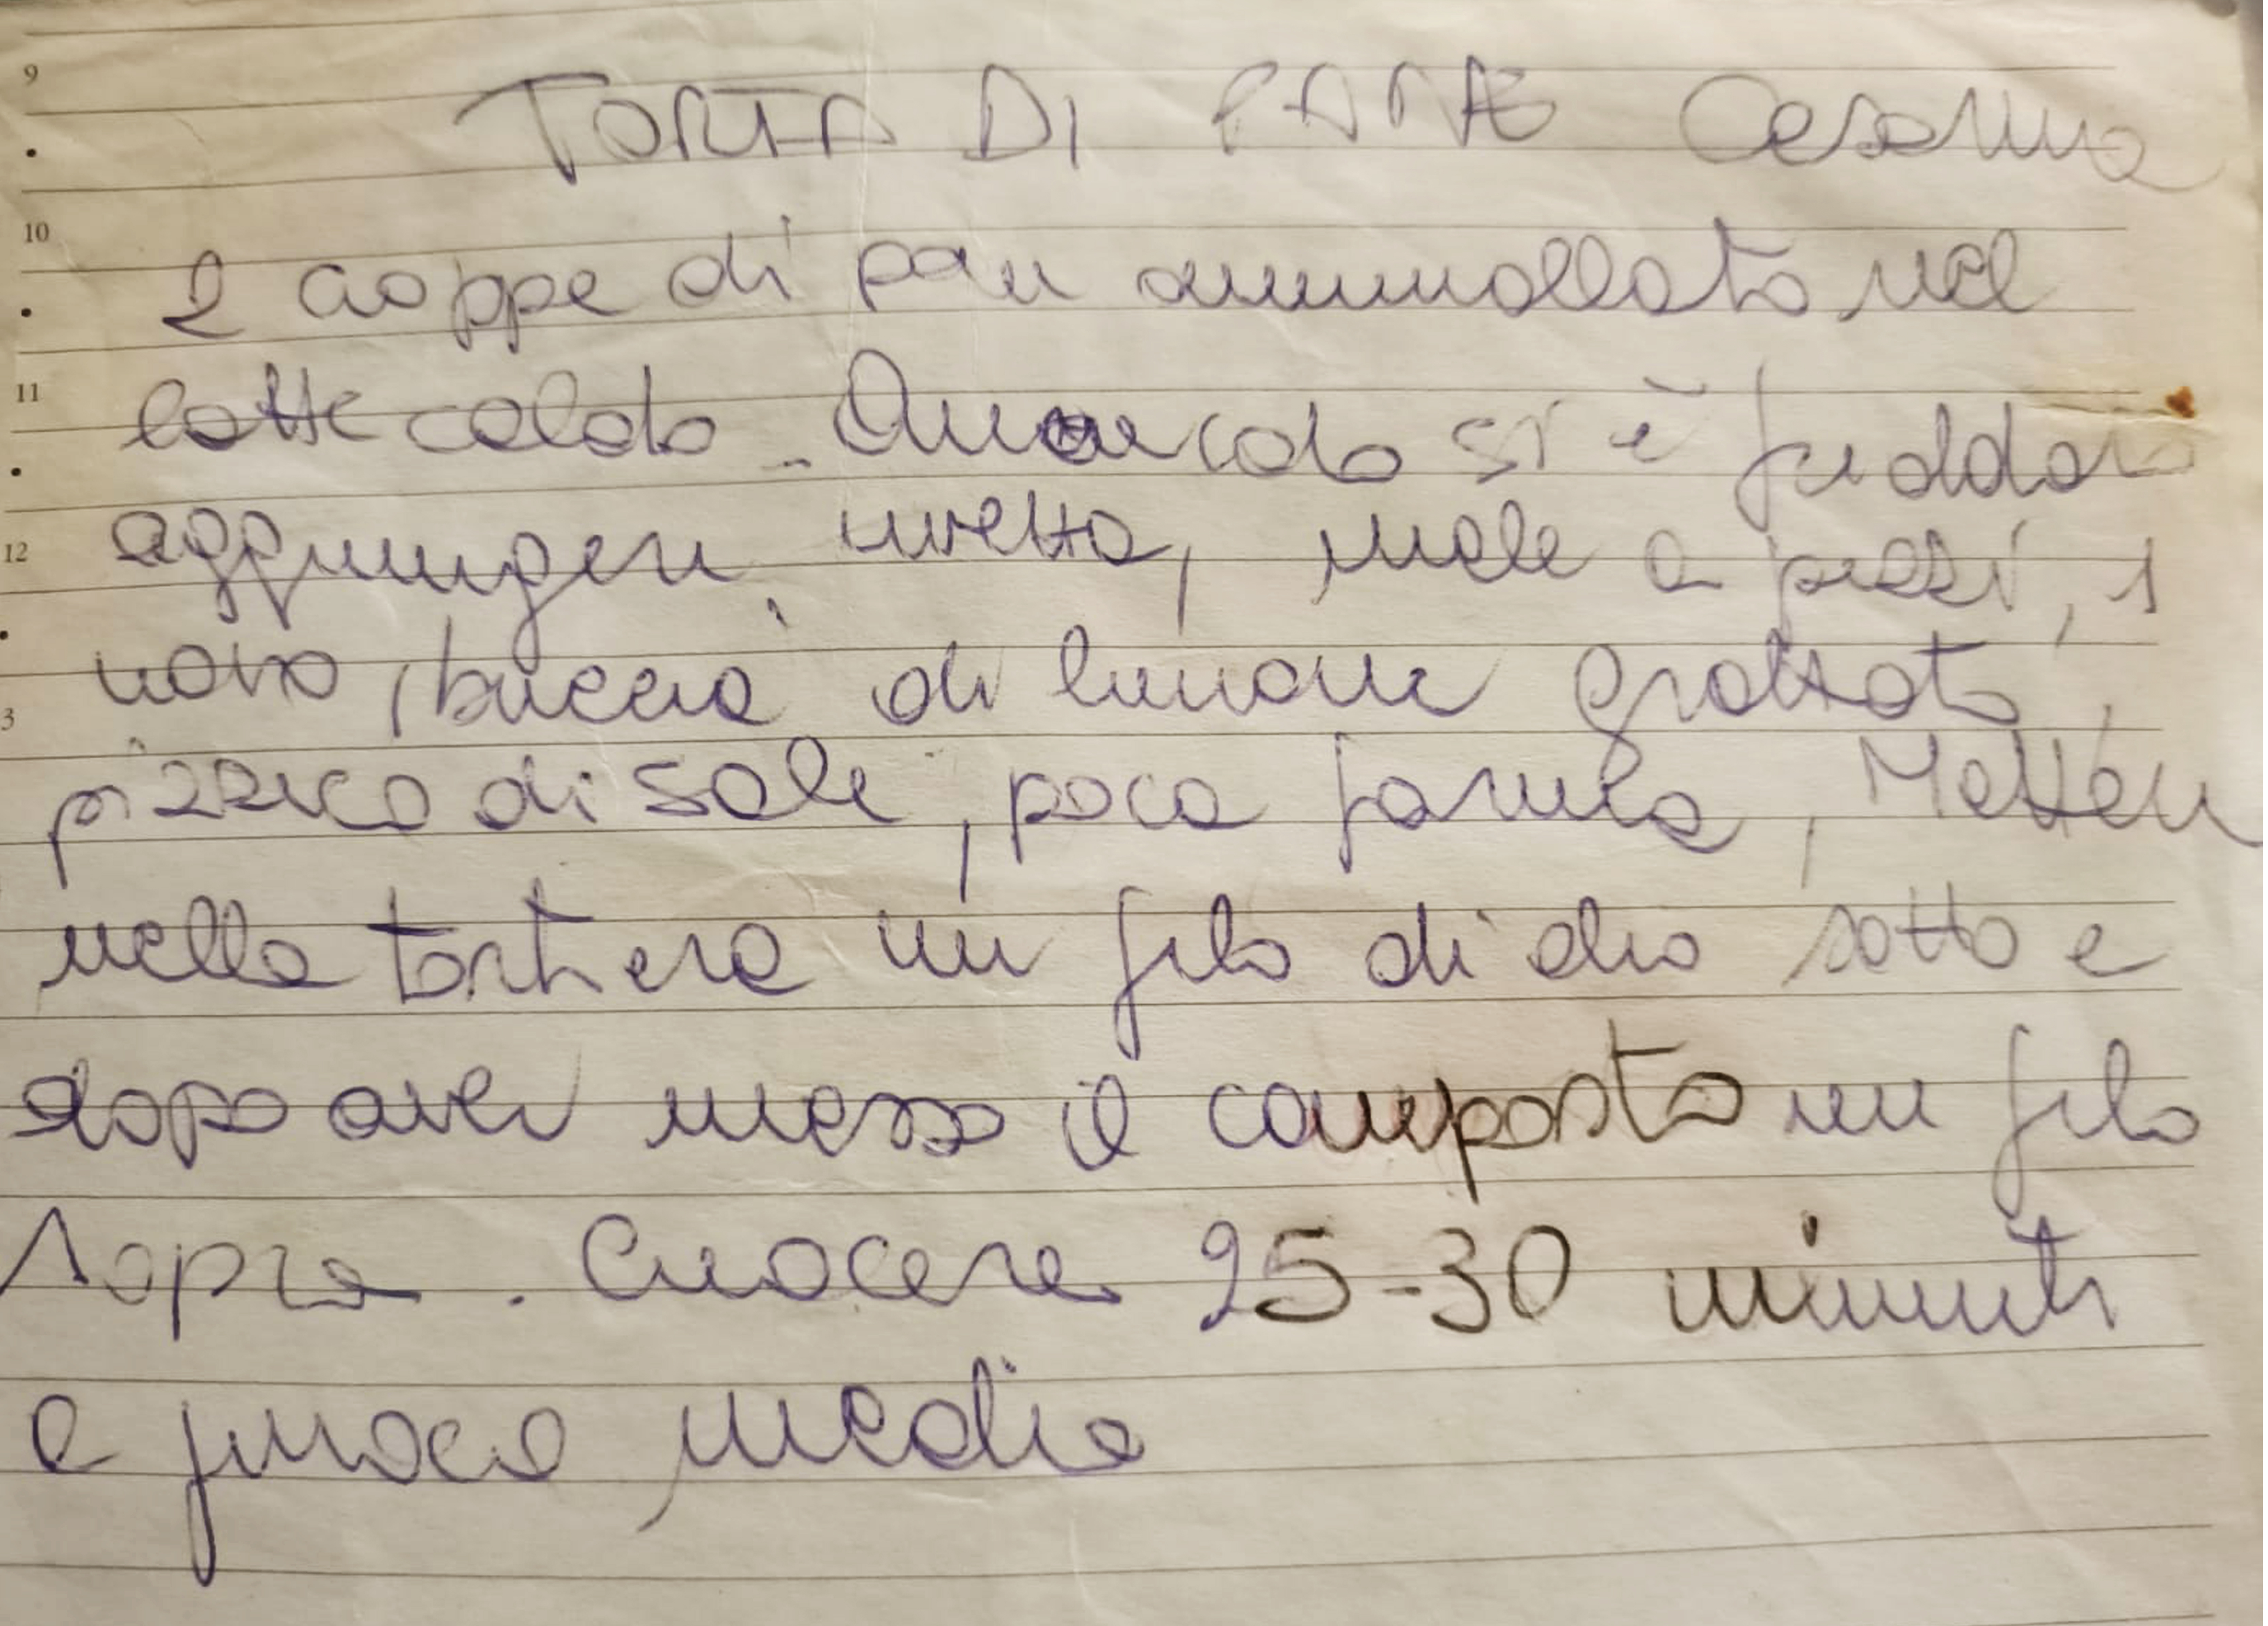 9
TORTA DI PANE Cesarina
10
2 coppe di pan ammollato nel
11
latte caldo. Quando si è freddato
12
aggiungere uvetta, mele a pezzi, 1
uovo, buccia di limone grattato,
3
pizzico di sale, poca farina, Mettere
nella tortiera un filo di olio sotto e
dopo aver messo il composto un filo
sopra. Cuocere 25-30 minuti
a fuoco medio